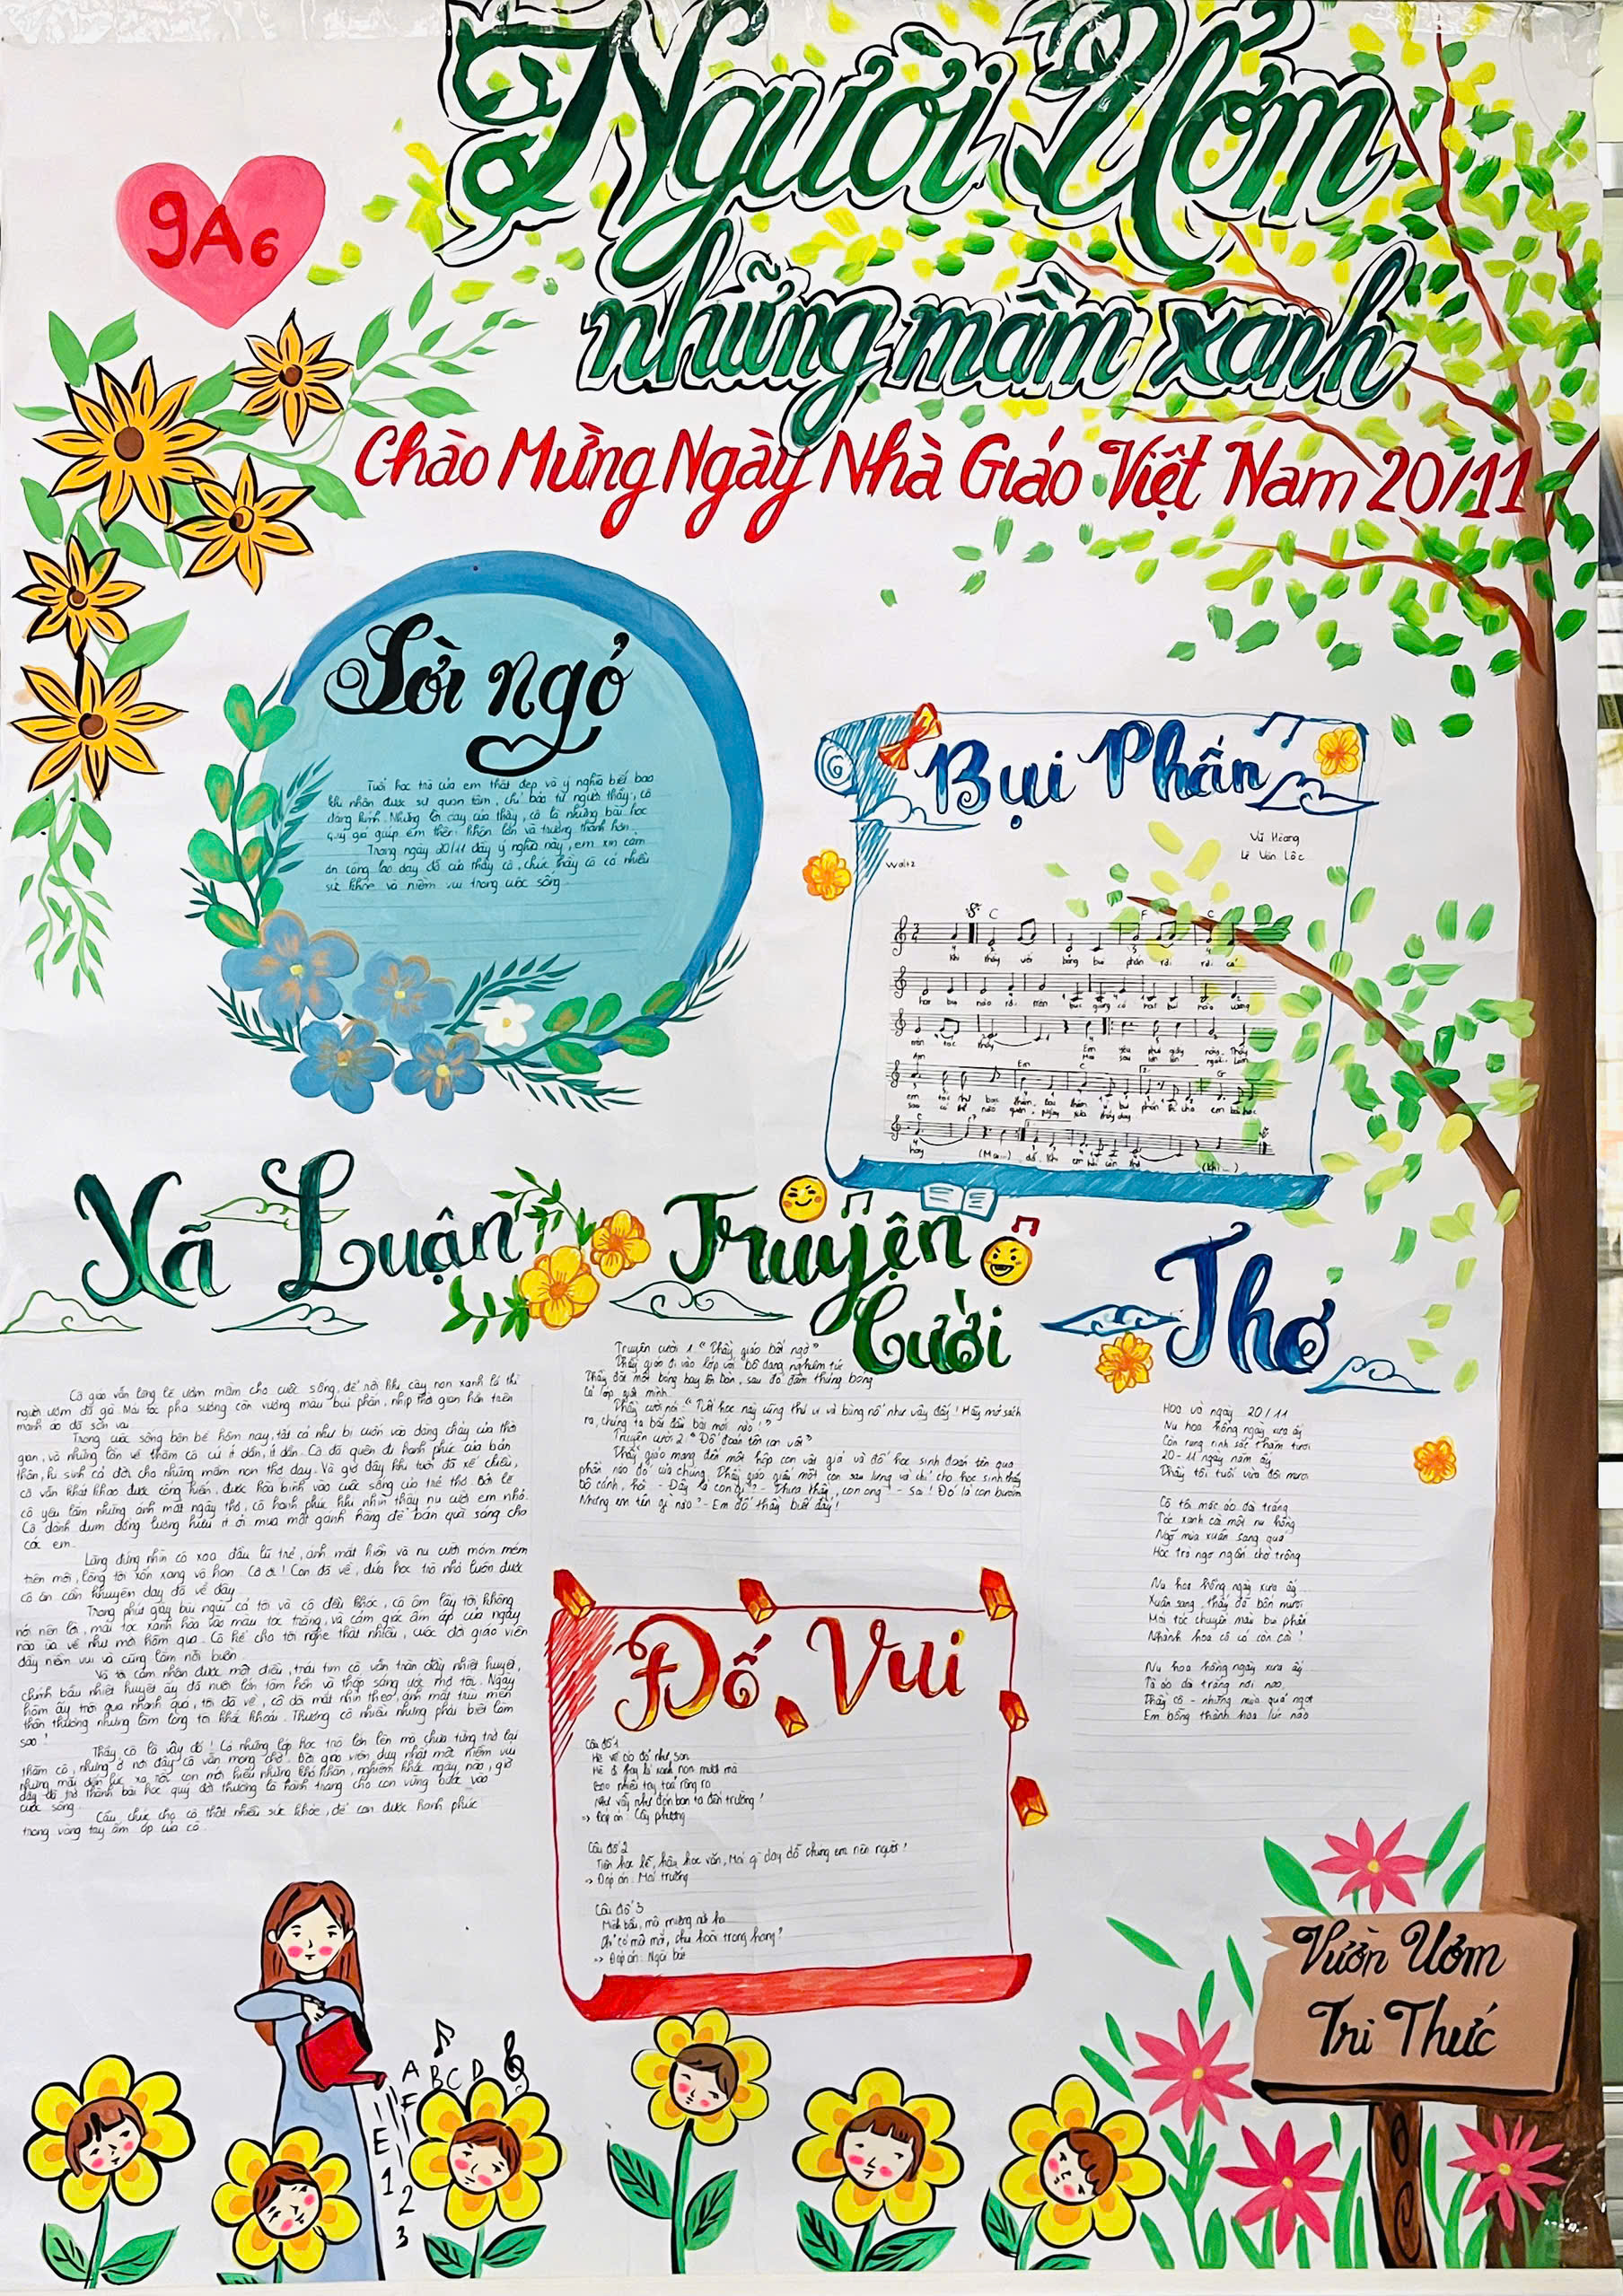 9A6
Người Ươm
những mầm xanh
Chào Mừng Ngày Nhà Giáo Việt Nam 20/11
Lời ngỏ
Tuổi học trò của em thật đẹp và ý nghĩa biết bao
khi nhận được sự quan tâm, chỉ bảo từ người thầy, cô
đáng kính. Những lời dạy của thầy, cô là những bài học
quý giá giúp em thêm khôn lớn và trưởng thành hơn.
Trong ngày 20/11 đầy ý nghĩa này, em xin cảm
ơn công lao dạy dỗ của thầy cô, chúc thầy cô có nhiều
sức khỏe và niềm vui trong cuộc sống.
Bụi Phấn
Vũ Hoàng
Lê Văn Lộc
Waltz
C F C
Khi thầy viết bảng bụi phấn rơi rơi có
hạt bụi nào rơi trên bục giảng có hạt bụi nào vương
trên tóc thầy Em yêu phút giây này. Thầy
Mai sau lớn lên người. Làm
Am Em C G
em tóc như bạc thêm. Bạc thêm vì bụi phấn để cho em bài học
sao có thể nào quên. Ngày xưa thầy dạy
hay (Mai...) dỗ. Khi em hãy còn thơ (Khi...)
Xã Luận
Cô giáo vẫn lặng lẽ ươm mầm cho cuộc sống, để rồi khi cây non xanh lá thì
người ươm đã già. Mái tóc pha sương còn vương màu bụi phấn, nhịp thời gian hằn trên
mảnh áo đã sờn vai.
Trong cuộc sống bộn bề hôm nay, tất cả như bị cuốn vào dòng chảy của thời
gian, và những lần về thăm cô cứ ít dần, ít dần. Cô đã quên đi hạnh phúc của bản
thân, hi sinh cả đời cho những mầm non thơ dại. Và giờ đây khi tuổi đã xế chiều,
cô vẫn khát khao được cống hiến, được hòa bình vào cuộc sống của trẻ thơ. Bởi lẽ
cô yêu lắm những ánh mắt ngây thơ, cô hạnh phúc khi nhìn thấy nụ cười em nhỏ.
Cô dành dụm đồng lương hưu ít ỏi mua một gánh hàng để bán quà sáng cho
các em.
Lặng đứng nhìn cô xoa đầu lũ trẻ, ánh mắt hiền và nụ cười móm mém
trên môi, lòng tôi xốn xang vô hạn. Cô ơi! Con đã về, đứa học trò nhỏ luôn được
cô ân cần khuyên dạy đã về đây.
Trong phút giây bùi ngùi cả tôi và cô đều khóc, cô ôm lấy tôi không
nói nên lời, mái tóc xanh hòa vào màu tóc trắng, và cảm giác ấm áp của ngày
nào ùa về như mới hôm qua. Cô kể cho tôi nghe thật nhiều, cuộc đời giáo viên
đầy niềm vui và cũng lắm nỗi buồn.
Và tôi cảm nhận được một điều, trái tim cô vẫn tràn đầy nhiệt huyết,
chính bầu nhiệt huyết ấy đã nuôi lớn tâm hồn và thắp sáng ước mơ tôi. Ngày
hôm ấy trôi qua nhanh quá, tôi đã về, cô dõi mắt nhìn theo, ánh mắt trìu mến
thân thương nhưng làm lòng tôi khắc khoải. Thương cô nhiều nhưng phải biết làm
sao!
Thầy cô là vậy đó! Có những lớp học trò lớn lên mà chưa từng trở lại
thăm cô, nhưng ở nơi đây cô vẫn mong chờ. Đời giáo viên duy nhất một niềm vui
nhưng mấy
đây đã trở thành bài học quý đời thường là hành trang cho con vững bước vào
cuộc sống.
Cầu chúc cho cô thật nhiều sức khỏe, để con được hạnh phúc
trong vòng tay ấm áp của cô.
Truyện
Cười
Truyện cười 1 "Thầy giáo bất ngờ"
Thầy giáo đi vào lớp với bộ dạng nghiêm túc.
Thầy đặt một bóng bay lên bàn, sau đó đâm thủng bóng
cả lớp giật mình.
Thầy cười nói: "Tiết học này cũng thú vị và bùng nổ như vậy đấy! Hãy mở sách
ra, chúng ta bắt đầu bài mới nào!"
Truyện cười 2: "Đố đoán tên con vật"
Thầy giáo mang đến một hộp con vật giả và đố học sinh đoán tên qua
phần nào đó của chúng. Thầy giáo giấu một con sau lưng và chỉ cho học sinh thấy
bộ cánh, hỏi - Đây là con gì? - Thưa thầy, con ong! - Sai! Đó là con bướm
Nhưng em tên gì nào? - Em đố thầy biết đấy!
Thơ
Hoa và ngày 20/11
Nụ hoa hồng ngày xưa ấy
Còn rung rinh sắc thắm tươi
20-11 ngày năm ấy
Thầy tôi tuổi vừa đôi mươi
Cô tôi mặc áo dài trắng
Tóc xanh cài một nụ hồng
Ngỡ mùa xuân sang quá
Học trò ngơ ngẩn chờ trông
Nụ hoa hồng ngày xưa ấy
Xuân sang thầy đã bốn mươi
Mái tóc chuyển màu bụi phấn
Nhành hoa cô có còn cài!
Nụ hoa hồng ngày xưa ấy
Tà áo dài trắng nơi nao
Thầy cô - những mùa quả ngọt
Em bỗng thành hoa lúc nào
Đố Vui
Câu đố 1
Hè về áo đỏ như son
Hè đi thay lá xanh non mượt mà
Bao nhiêu tay toả rộng ra
Như vẫy như đón bạn ta đến trường!
-> Đáp án: Cây phượng
Câu đố 2
Tiên học lễ, hậu học văn, Nơi gì dạy dỗ chúng em nên người!
-> Đáp án: Mái trường
Câu đố 3
Mình bầu, mà miệng
Chỉ có
-> Đáp án: Ngòi bút
Vườn Ươm
Tri Thức
A
B C D
F
E
1
2
3